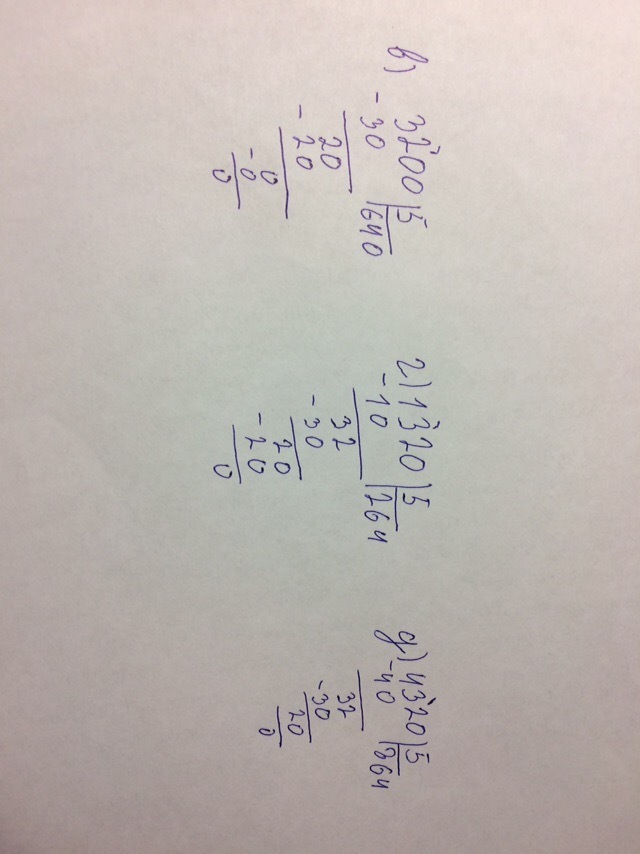 в) 3200 | 5
- 30 | 640
20
- 20
0
- 0
0
г) 1320 | 5
- 10 | 264
32
- 30
20
- 20
0
д) 4320 | 5
- 40 | 864
32
- 30
20
0